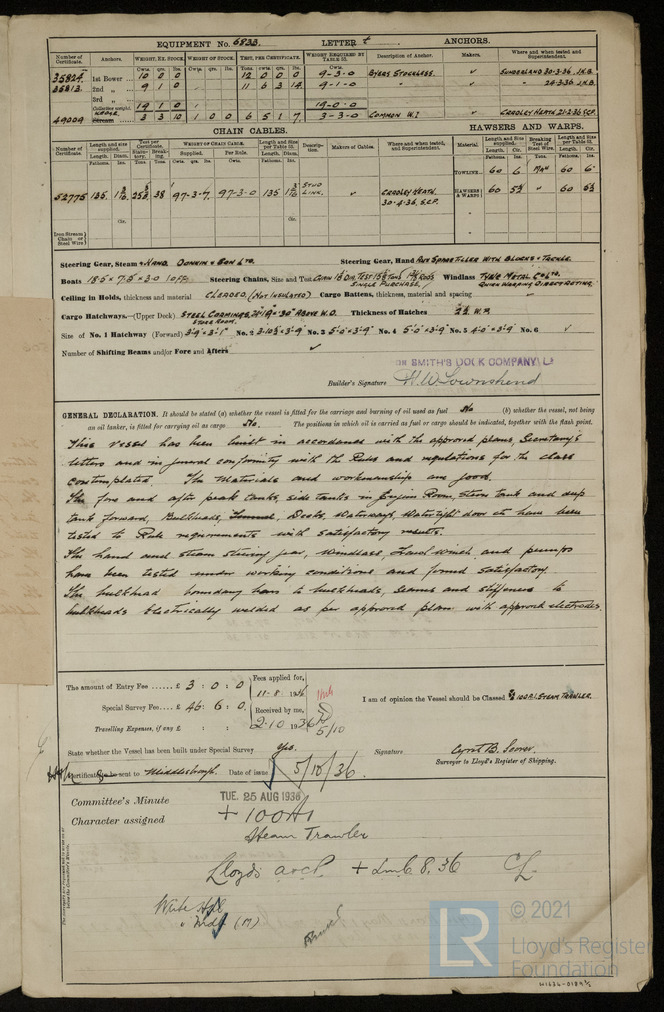 EQUIPMENT No. 6833. LETTER t ANCHORS.
Number of Certificate. Anchors. WEIGHT, EX. STOCK. WEIGHT OF STOCK. TEST, PER CERTIFICATE. WEIGHT REQUIRED BY TABLE 31. Description of Anchor. Makers. Where and when tested and Superintendent.
Cwts. qrs. lbs. Cwts. qrs. lbs. Tons. cwts. qrs. lbs. Cwts.
35824. 1st Bower 10 0 0 12 0 0 0 9-3-0 BYERS STOCKLESS. SUNDERLAND 30-3-36 J.H.B.
35813. 2nd „ 9 1 0 11 6 3 14 9-1-0 " " 24-3-36 J.H.B.
3rd „
Collective weight. 19 1 0 19-0-0
49009 KEDGE Stream 3 3 10 1 0 0 6 5 1 7 3-3-0 COMMON W.I CRADLEY HEATH 21-2-36 S.C.P.
CHAIN CABLES. HAWSERS AND WARPS.
Number of Certificate. Length and size supplied. Test per Certificate. WEIGHT OF CHAIN CABLE. Length and size per Table 31. Description. Makers of Cables. Where and when tested, and Superintendent. Material. Length and Size supplied. Breaking Test of Steel Wire. Length and Size per Table 31.
Length. Diam. Statutory. Breaking. Supplied. Per Rule. Length. Diam. Length. Cir. Length. Cir.
TOWLINE 60 6 MAN 60 6
52775 135 38 97-3-7 97-3-0 135 STUD LINK. CRADLEY HEATH. 30-4-36. S.C.P. HAWSERS & WARPS 60 5½ " 60 5½
Iron Stream Chain or Steel Wire
Steering Gear, Steam & HAND. DONKIN & SON LTD. Steering Gear, Hand AUX SPARE TILLER WITH BLOCKS & TACKLE.
Boats 18.5 x 7.5 x 3.0 Steering Chains, Size and Test Windlass TYNE METAL CO LTD.
SINGLE PURCHASE. QUICK WARPING DIRECT ACTING.
Ceiling in Holds, thickness and material CLEADED. (NOT INSULATED) Cargo Battens, thickness, material and spacing
Cargo Hatchways.—(Upper Deck) STEEL COAMINGS, 30" ABOVE W.D. Thickness of Hatches 2½ W.P.
STORE ROOM.
Size of No. 1 Hatchway (Forward) 3'-9" x 3'-1" No. 2 3'-10½ x 3'-9" No. 3 5'-0 x 3'-9" No. 4 5'-0 x 3'-9" No. 5 4'-0 x 3'-9" No. 6
Number of Shifting Beams and/or Fore and Afters
SMITH'S DOCK COMPANY LD
Builder's Signature W. W. Townshend
GENERAL DECLARATION. It should be stated (a) whether the vessel is fitted for the carriage and burning of oil used as fuel No (b) whether the vessel, not being
an oil tanker, is fitted for carrying oil as cargo No. The positions in which oil is carried as fuel or cargo should be indicated, together with the flash point.
This vessel has been built in accordance with the approved plans, Secretary's
letters and in general conformity with the Rules and regulations for the class
contemplated. The Materials and workmanship are good.
The fore and after peak tanks, side tanks in Engine Room, stern tank and deep
tank forward, Bulkheads, Tunnel, Decks, Waterways, Watertight door etc have been
tested to Rule requirements with satisfactory results.
The hand and steam steering gear, windlass, Trawl winch and pumps
have been tested under working conditions and found satisfactory.
The bulkhead boundary bars to bulkheads, seams and stiffeners to
bulkheads Electrically welded as per approved plan with approved electrodes.
The amount of Entry Fee ...... £ 3 : 0 : 0 Fees applied for, 11-8 1936
Special Survey Fee.... £ 46 : 6 : 0 Received by me, 2.10.1936 5/10
Travelling Expenses, if any £ : :
I am of opinion the Vessel should be Classed 100A1. STEAM TRAWLER.
State whether the Vessel has been built under Special Survey Yes. Signature
Surveyor to Lloyd's Register of Shipping.
Certificate to be sent to Middlesbrough. Date of issue 5/10/36.
Committee's Minute TUE. 25 AUG 1936
Character assigned + 100A1
Steam Trawler
Lloyds a&cp. + LMC 8.36 CL
Write
" (M)
LR
© 2021
Lloyd's Register
Foundation